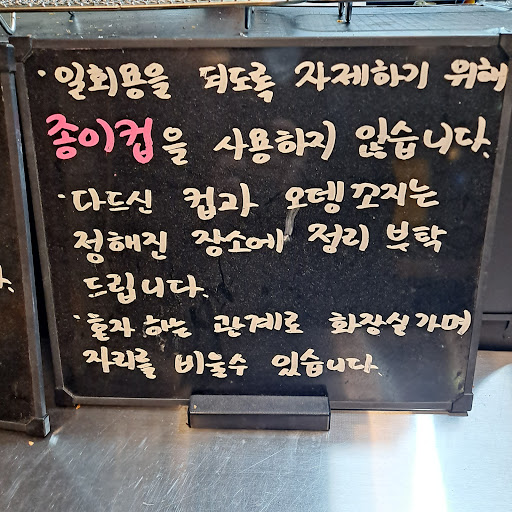 · 일회용을 되도록 자제하기 위해
종이컵을 사용하지 않습니다.
· 다드신 컵과 오뎅꼬지는
정해진 장소에 정리 부탁
드립니다.
· 혼자 하는 관계로 화장실가며
자리를 비울수 있습니다.